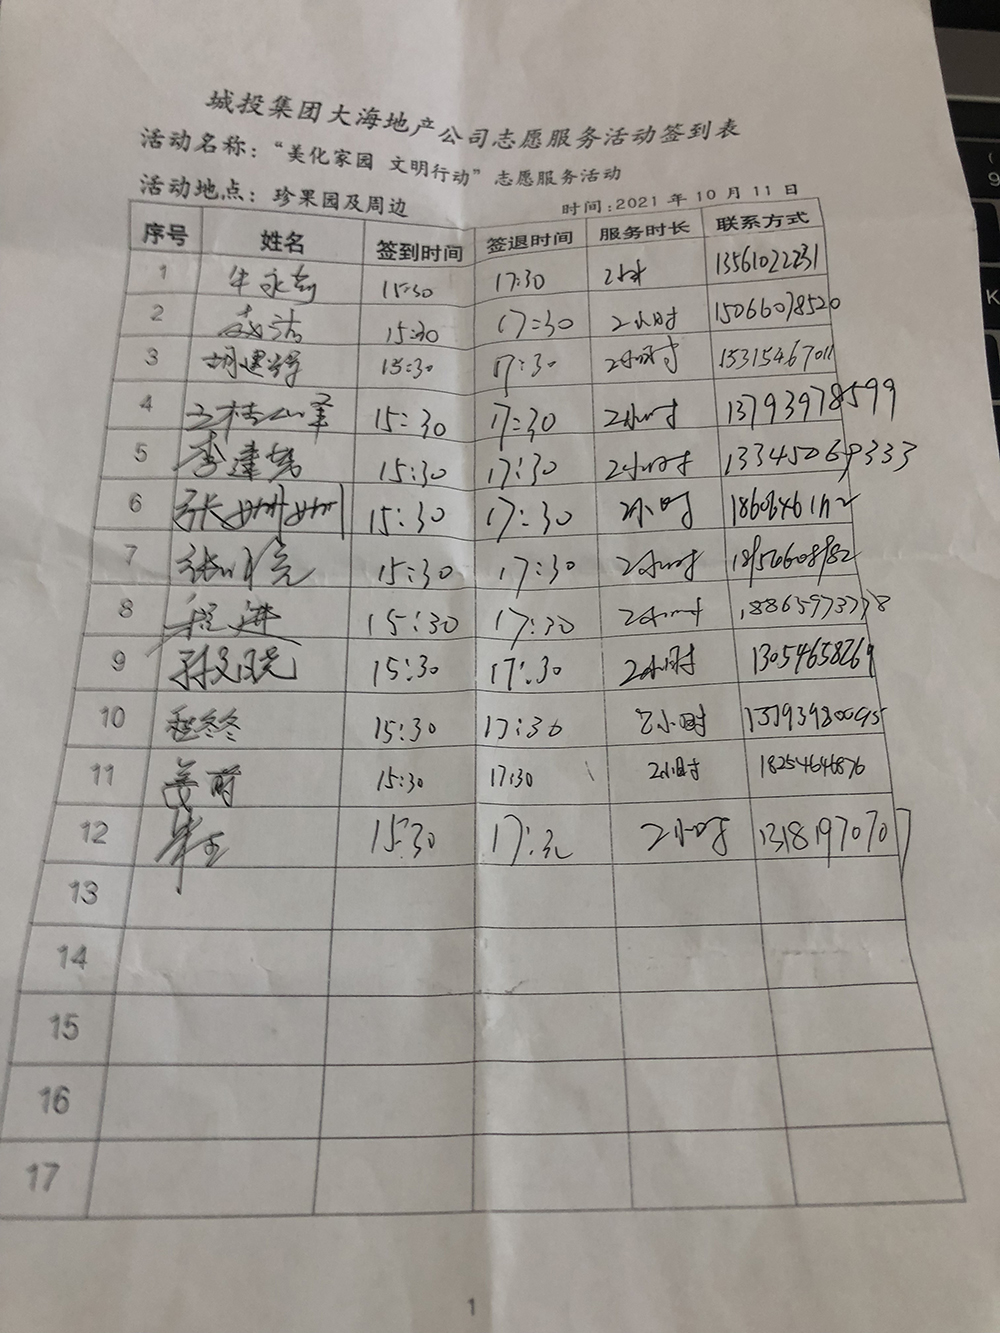 城投集团大海地产公司志愿服务活动签到表
活动名称：“美化家园 文明行动”志愿服务活动
活动地点：珍果园及周边 时间：2021 年 10 月 11 日
序号 姓名 签到时间 签退时间 服务时长 联系方式
1 15:30 17:30 13561022231
2 15:30 17:30 2小时 15066078520
3 15:30 17:30 2小时 15315467011
4 15:30 17:30 2小时 13793978599
5 李建 15:30 17:30 2小时 13345069333
6 张姗姗 15:30 17:30 2小时
7 15:30 17:30 2小时
8 程进 15:30 17:30 2小时
9 孙文晓 15:30 17:30 2小时 13054658269
10 程冬冬 15:30 17:30 2小时
11 姜萌 15:30 17:30 2小时 18254646876
12 15:30 17:30 2小时 13181970707
13
14
15
16
17
1